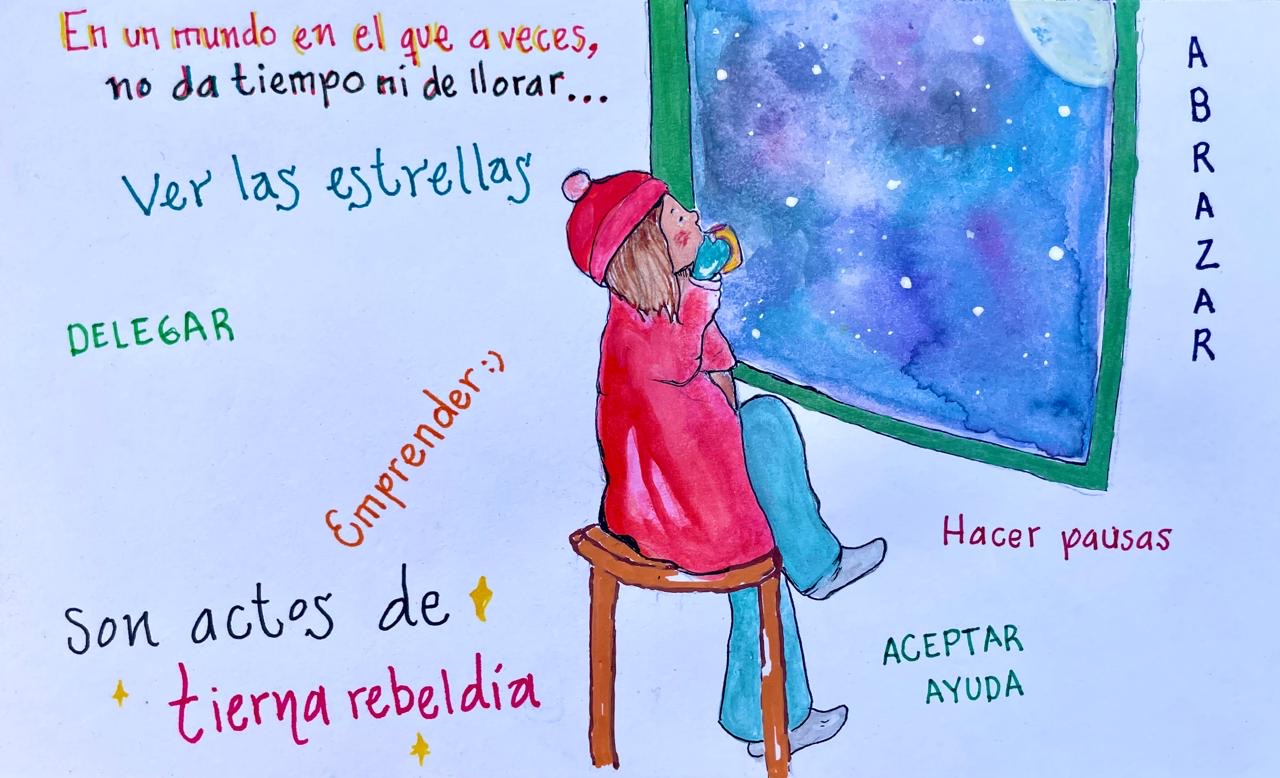 En un mundo en el que a veces,
no da tiempo ni de llorar...
Ver las estrellas
DELEGAR
Emprender:)
ABRAZAR
Hacer pausas
ACEPTAR
AYUDA
son actos de
tierna rebeldía